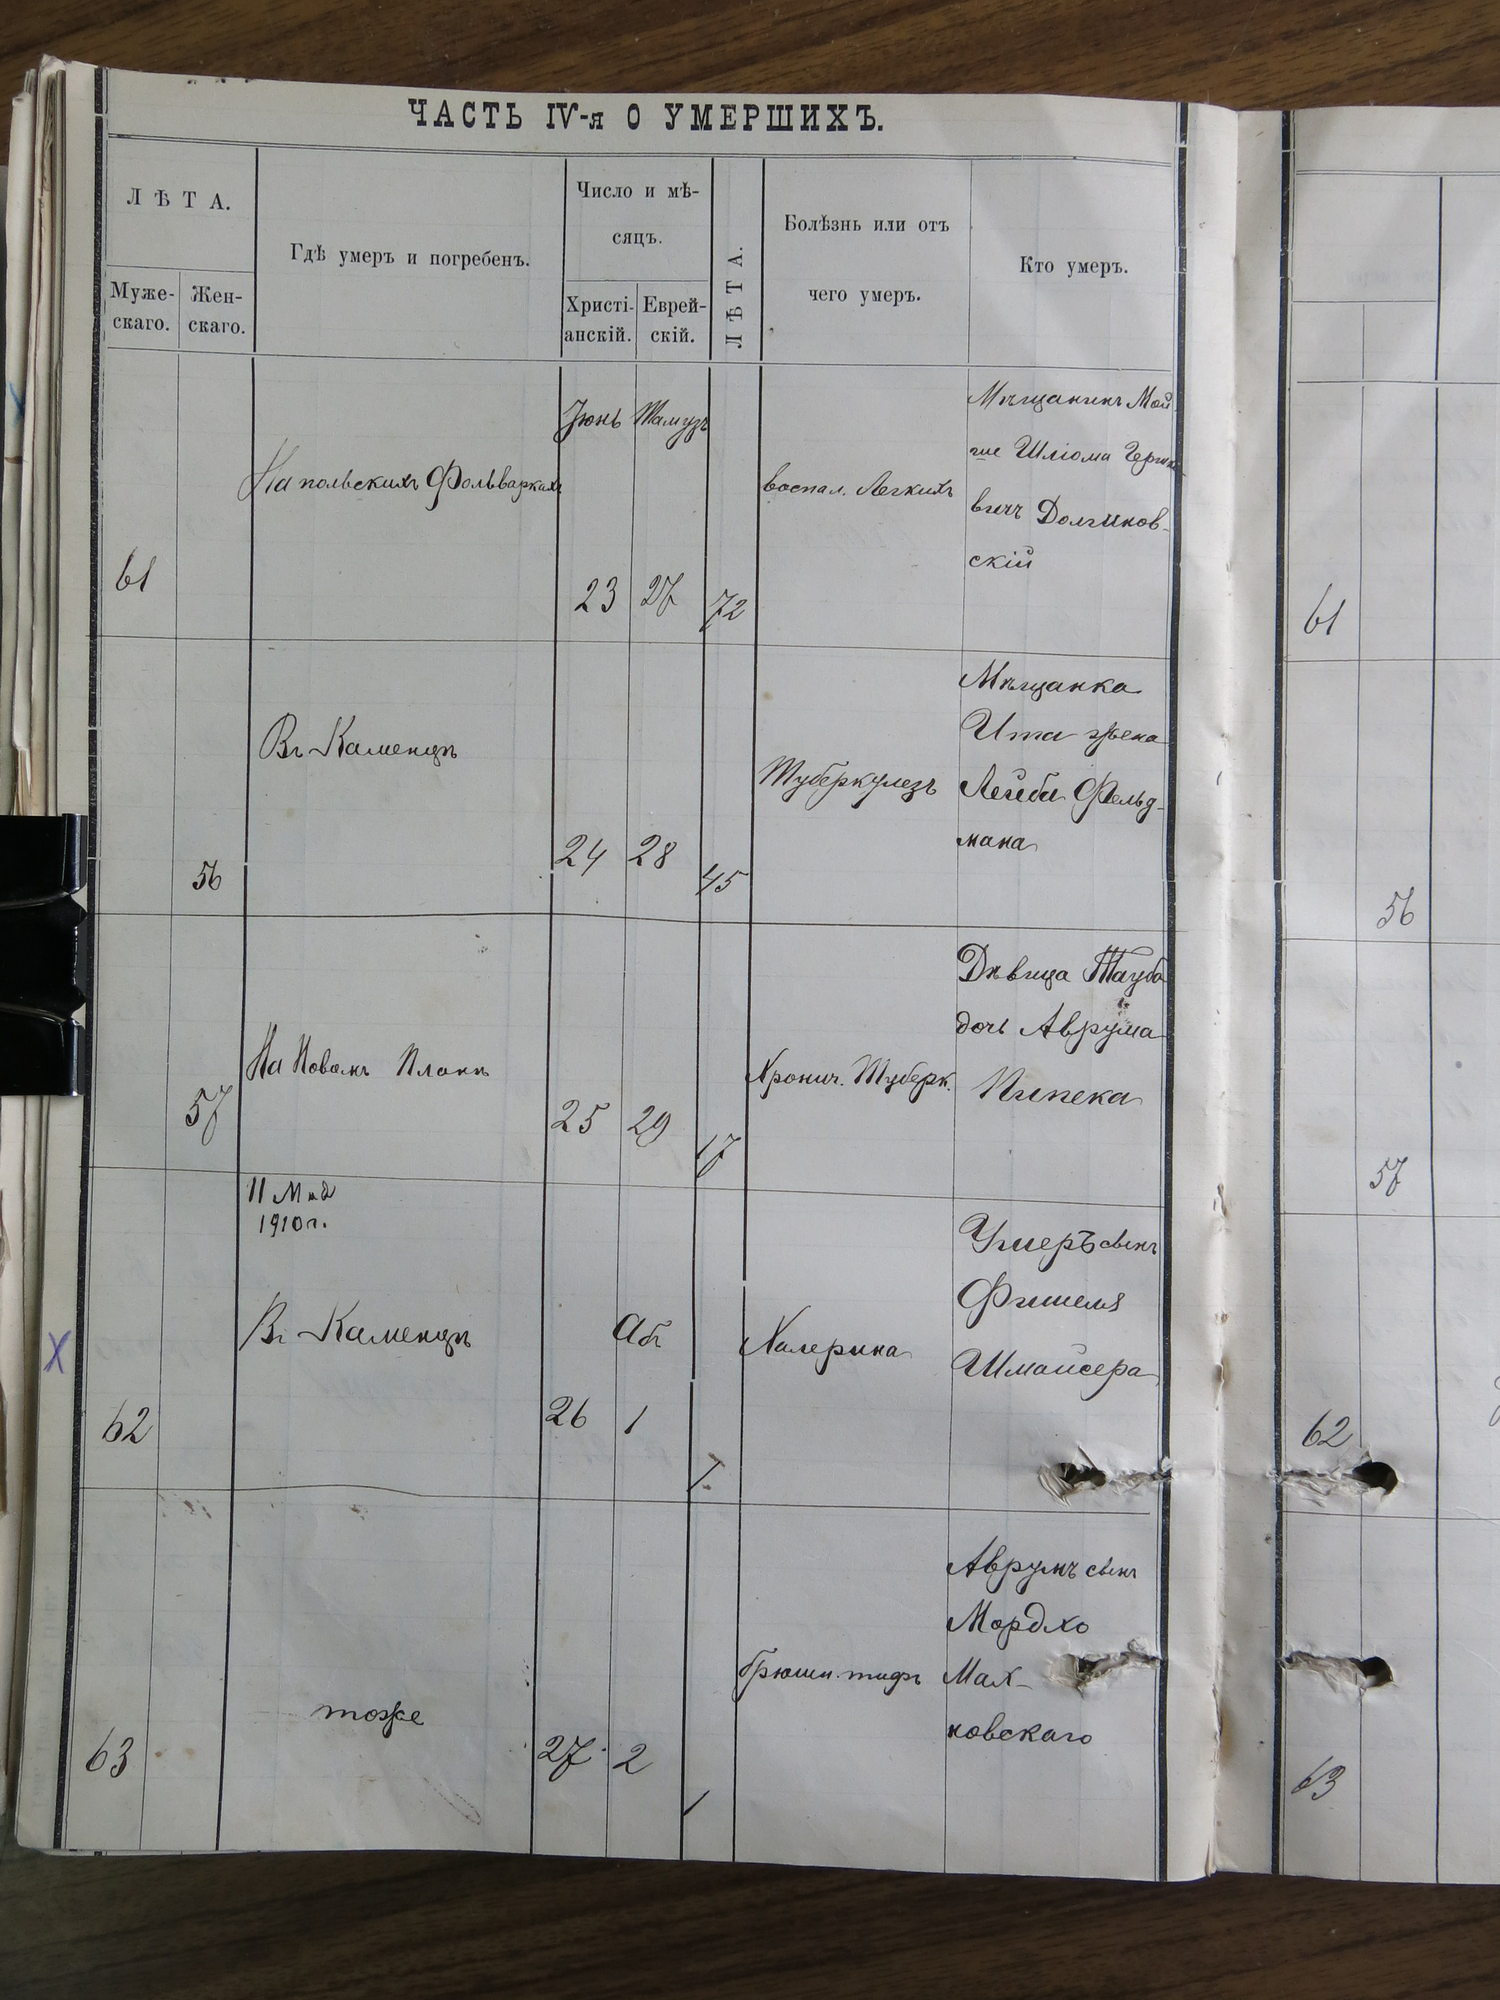 ЧАСТЬ IV-я О УМЕРШИХЪ.
ЛѢТА.
Муже-
скаго.
Жен-
скаго.
Гдѣ умеръ и погребенъ.
Число и мѣ-
сяцъ.
Христі-
анскій.
Еврей-
скій.
ЛѢТА.
Болѣзнь или отъ
чего умеръ.
Кто умеръ.
61
На польскихъ Фольваркахъ
Іюнь
23
Тамузъ
27
72
воспал. Легкихъ
Мѣщанинъ Мой
ше Шліома
вичъ Долгинов-
скій
61
56
Въ Каменцѣ
24
28
45
Туберкулезъ
Мѣщанка
Ита жена
Лейби Фельд-
мана
56
57
На Новомъ Планѣ
25
29
17
Хронич. Туберк.
Дѣвица Тауба
дочь Аврума
Пипека
57
X
62
11
1910 г.
Въ Каменцѣ
26
Абъ
1
Холерина
Умеръ сынъ
Фишеля
Шмайсера
62
63
тоже
27
2
1
брюшн. тифъ
Аврумъ сынъ
Мордхо
Мах-
новскаго
63